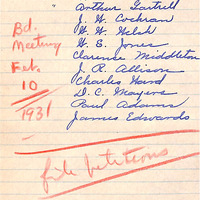 Arthur Gartrell
J. H. Cochran
W. W. Welsh
W. S. Jones
Clarence Middleton
J. R. Allison
Charles Hand
D. C. Mayers
Paul Adams
James Edwards
Bd.
Meeting
Feb.
10
1931
file petitions